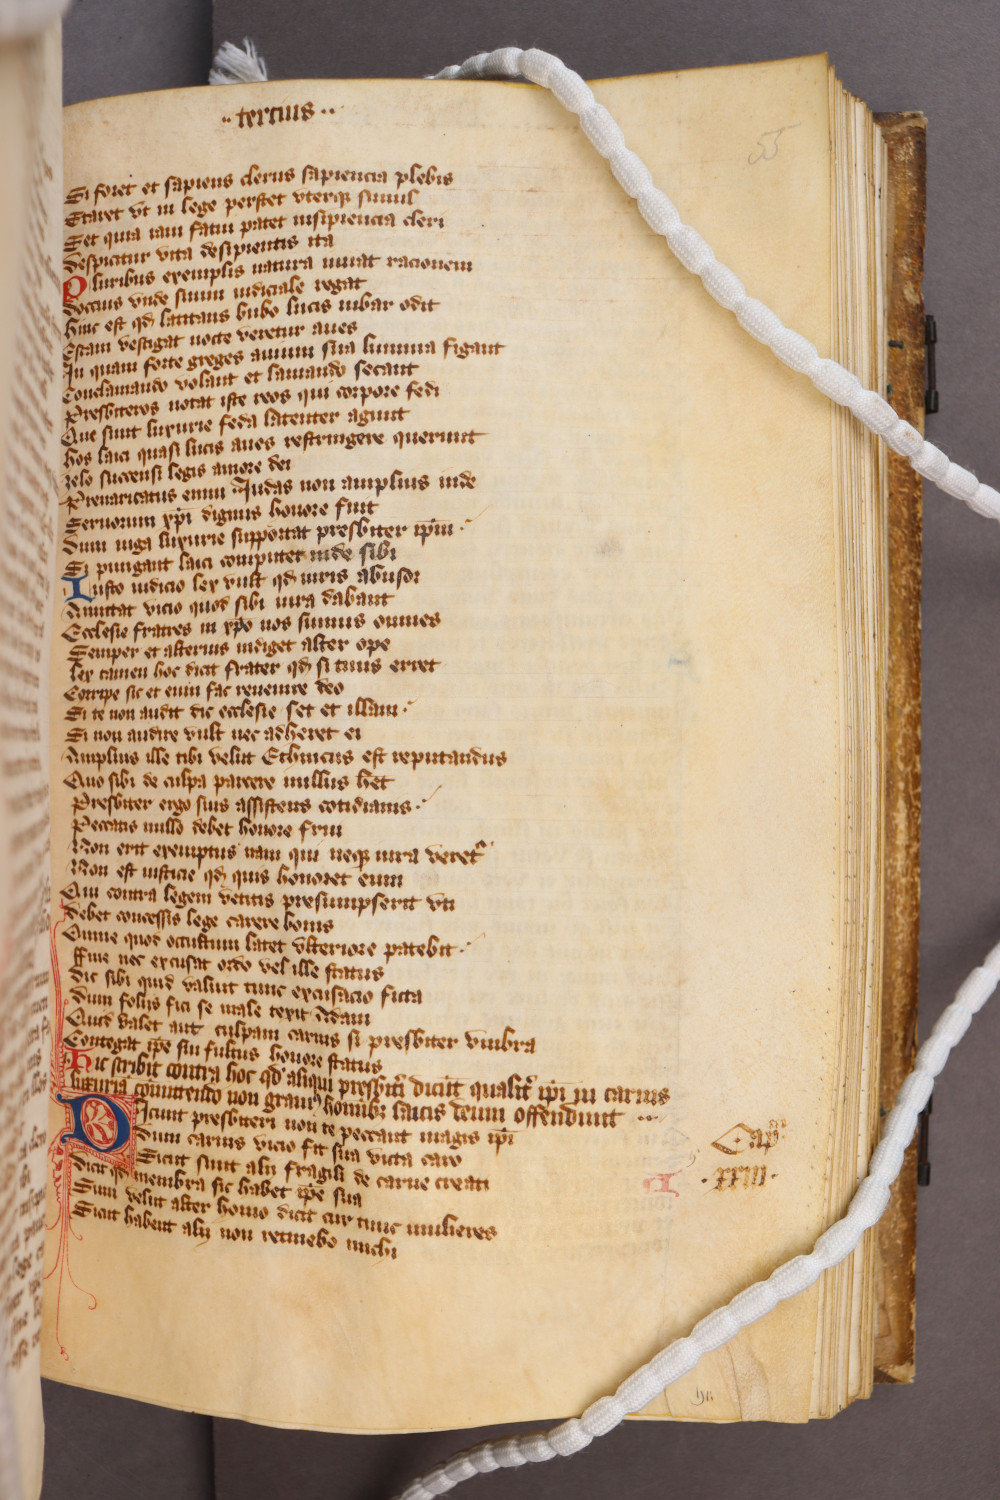 ·· tercius ··
55
Si foret et sapiens clerus sapiencia plebis
Staret vt in lege perstet vterqȝ simul
Set quia iam fatui patet insipiencia cleri
Despicitur vita desipientis ita
Pluribus exemplis natura iuuat racionem
Doccius vnde suum iudiciale regat
Hinc est qd latitans bubo lucis iubar odit
Escam vestigat nocte veretur aues
In quam forte greges auium sua lumina figant
Conclamando volant et laniando secant
Presbiteros notat iste reos qui corpore fedi
Que sunt luxurie feda latenter agunt
Hos laici quasi lucis aues restringere querunt
Zelo succensi legis amore dei
Preuaricatus enim Iudas non amplius inde
Seruorum xpi dignus honore fuit
Dum iuga luxurie supportat presbiter ipm ·
Si pungant laici computet inde sibi
Iusto iudicio lex vult qd iuris abusor
Amittat vicio quod sibi iura dabant
Ecclesie fratres in xpo nos sumus omnes
Semper et alterius indiget alter ope
Lex tamen hoc dicit frater qd si tuus erret
Corripe sic et eum fac reuenire deo
Si te non audit dic ecclesie set et illam ·
Si non audire vult nec adheret ei
Amplius ille tibi velut Ethnicus est reputandus
Quo sibi de culpa parcere nullus het
Presbiter ergo suis assistens cotidianis ·
Peccatis nullo debet honore frui
Non erit exemptus nam qui neqȝ iura veret
Non est iusticie qd quis honoret eum
Qui contra legem vetitis presumpserit vti
Debet concessis lege carere bonis
Omne quod occultum latet vlteriore patebit ·
Fine nec excusat ordo vel ille status
Dic sibi quid valuit tunc excusacio ficta
Dum foliis fici se male texit Adam
Quid valet aut culpam carnis si presbiter vmbra
Contegat ipe sui fultus honore status
Hic scribit contra hoc qd aliqui presbiti dicut qualit ipi in carnis
luxuria comittendo non graui hominib laicis deum offendunt ···
Dicunt presbiteri non te peccant magis ipi
Dum carnis vicio fit sua victa caro
Sicut sunt alii fragili de carne creati
Dicit qd membra sic habet ipe sua
Sum velut alter homo dicit cur tunc mulieres
Sicut habent alii non retinebo michi
Cap
· XXIII ·